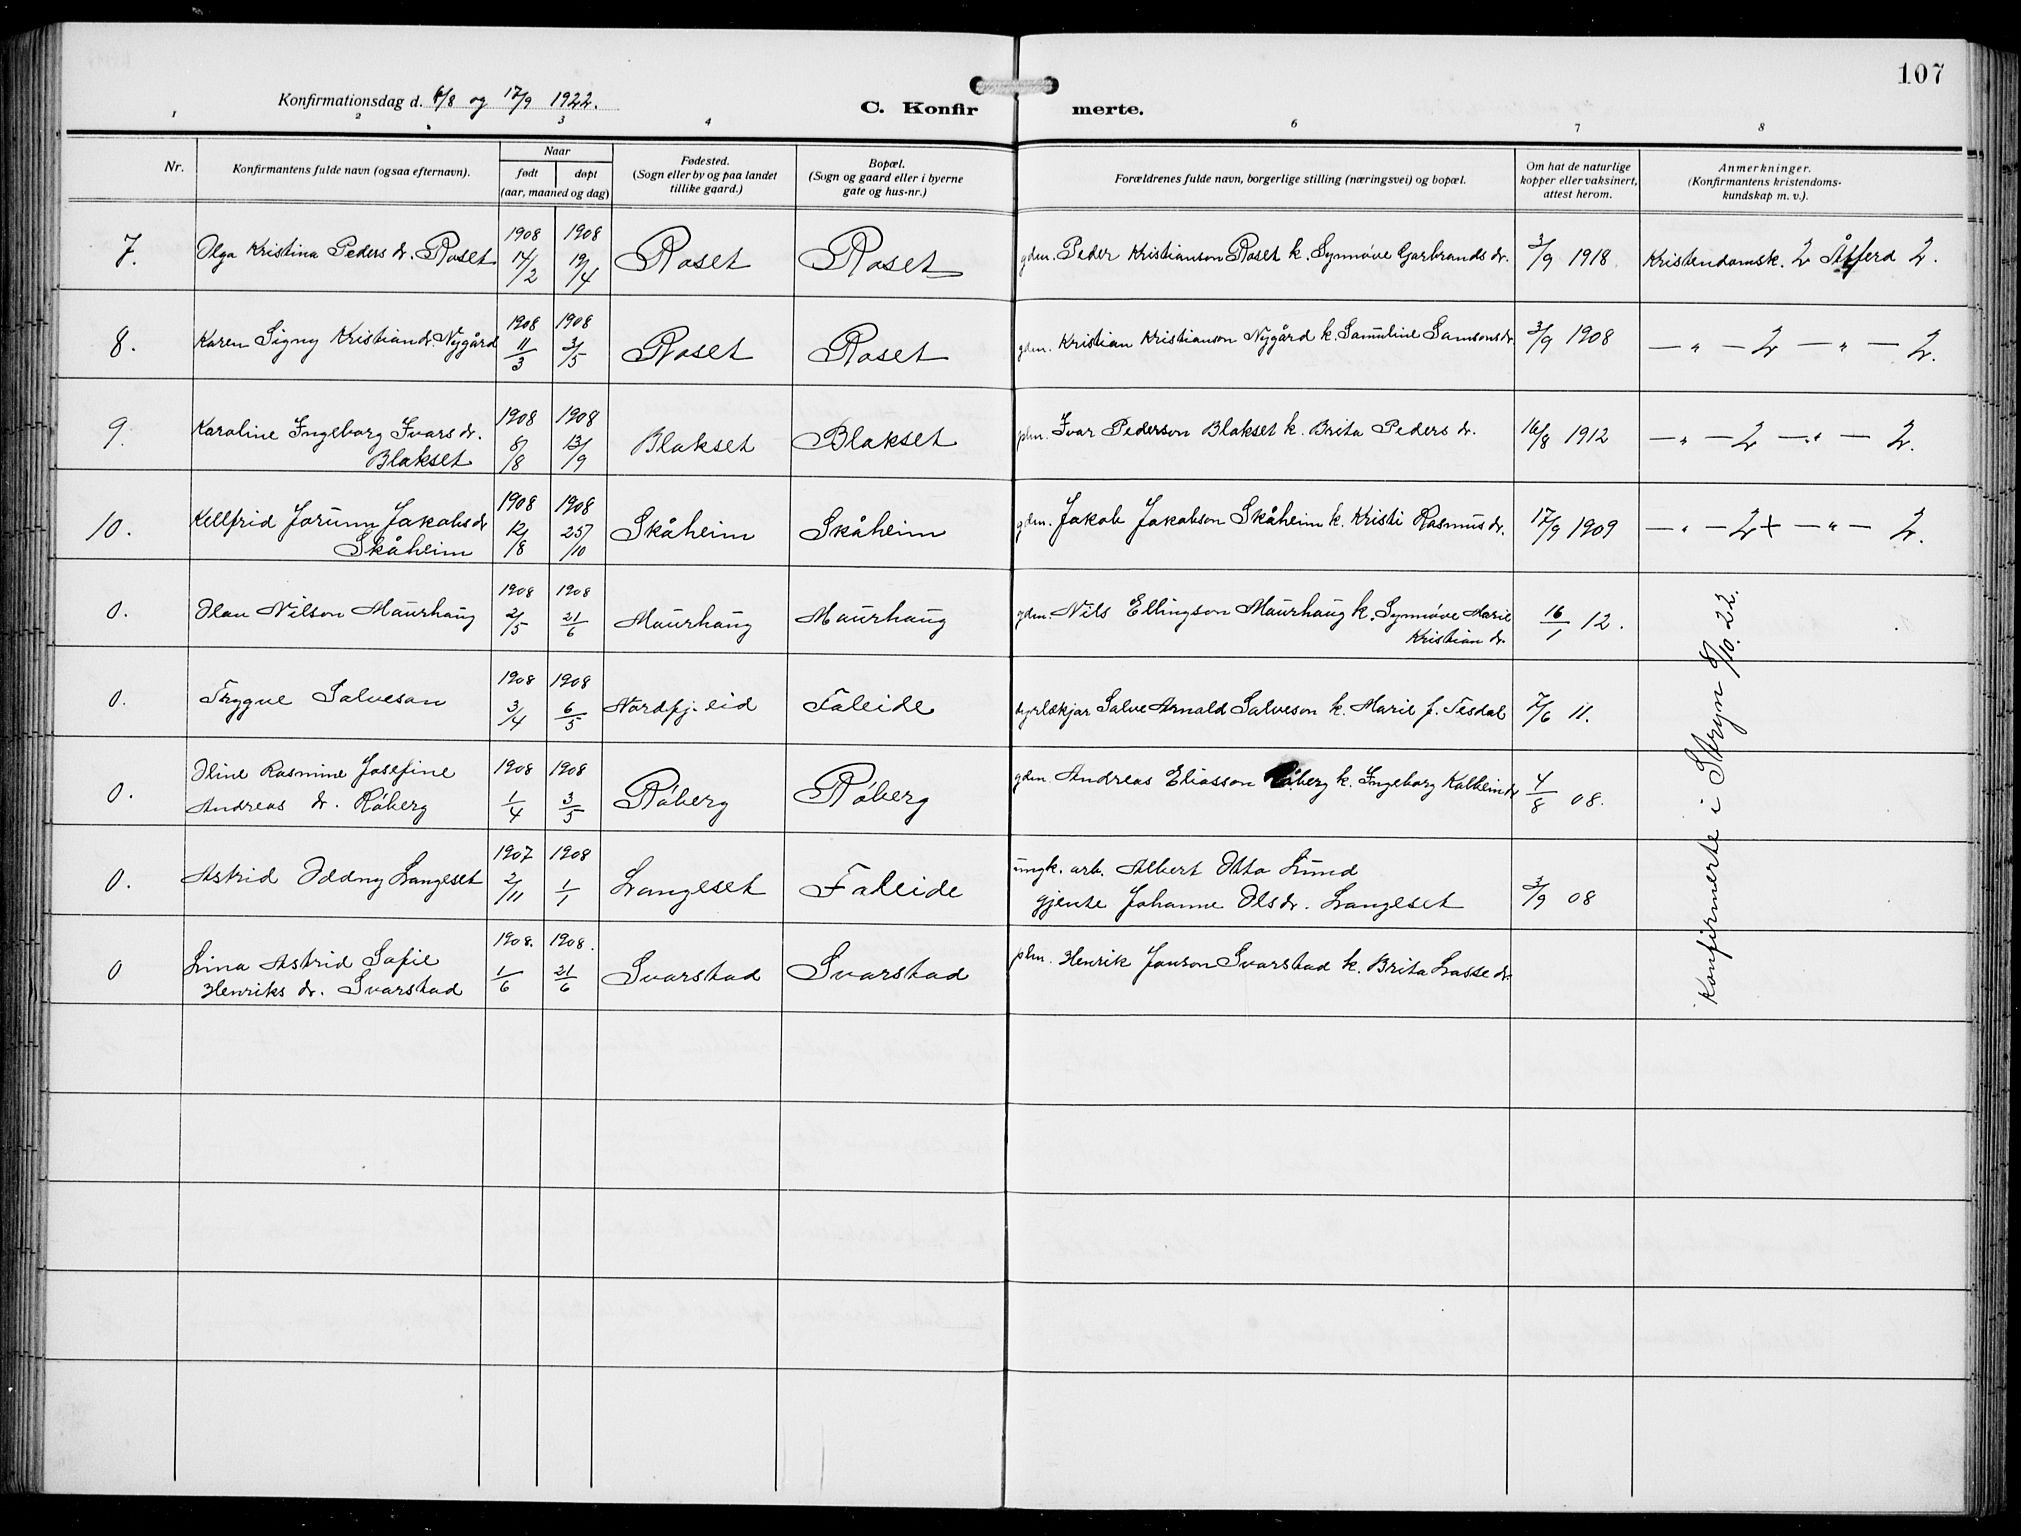 107
Konfirmationsdag d. 6/8 og 17/9 1922.
C. Konfirmerte.
1 2 3 4 6 7 8
Nr.
Konfirmantens fulde navn (ogsaa efternavn).
Naar
født døpt
(aar, maaned og dag)
Fødested.
(Sogn eller by og paa landet
tillike gaard.)
Bopæl.
(Sogn og gaard eller i byerne
gate og hus-nr.)
Forældrenes fulde navn, borgerlige stilling (næringsvei) og bopæl.
Om hat de naturlige
kopper eller vaksinert,
attest herom.
Anmerkninger.
(Konfirmantens kristendoms-
kundskap m. v.).
7. Olga Kristina Peders dr. Roset 1908 14/2 1908 19/4 Roset Roset gdm. Peder Kristianson Roset k. Synnøve Garbrands dr. 3/9 1918 Kristendomsk. 2 Åtferd 2.
8. Karen Signy Kristiandr. Nygård 1908 11/3 1908 3/5 Roset Roset gdm. Kristian Kristianson Nygård k. Samuline Samsonsdr. 3/9 1908 — " — 2 — " — 2.
9. Karoline Ingeborg Ivars dr.
Blakset 1908 8/8 1908 13/9 Blakset Blakset plm. Ivar Pederson Blakset k. Brita Peders dr. 16/8 1912 — " — 2 — " — 2.
10. Kellfrid Jorunn Jakobs dr
Skåheim 1908 12/8 1908 25/10 Skåheim Skåheim gdm. Jakob Jakobson Skåheim k. Kristi Rasmus dr. 17/9 1909 — " — 2+ — " — 2.
0. Olav Nilson Maurhaug 1908 2/5 1908 21/6 Maurhaug Maurhaug gdm. Nils Ellingson Maurhaug k. Synnøve Marie
Kristian dr. 16/1 12.
0. Trygve Salveson 1908 3/4 1908 6/5 Nordfj. eid Faleide dyrlækjar Salve Arnald Salveson k. Marie f. Tesdal 7/6 11.
0. Oline Rasmine Josefine
Andreas dr. Råberg 1908 1/4 1908 3/5 Råberg Råberg gdm. Andreas Eliasson Råberg k. Ingeborg Kolbeindr 4/8 08.
0. Astrid Oddny Langeset 1907 2/11 1908 1/1 Langeset Faleide ungk. arb. Albert Otto Lund
gjente Johanne Olsdr. Langeset 3/9 08
0 Lina Astrid Sofie
Henriks dr. Svarstad 1908. 1/6 1908. 21/6 Svarstad Svarstad plm. Henrik Janson Svarstad k. Brita Lasse dr.
Konfirmerte i Stryn 8/10. 22.